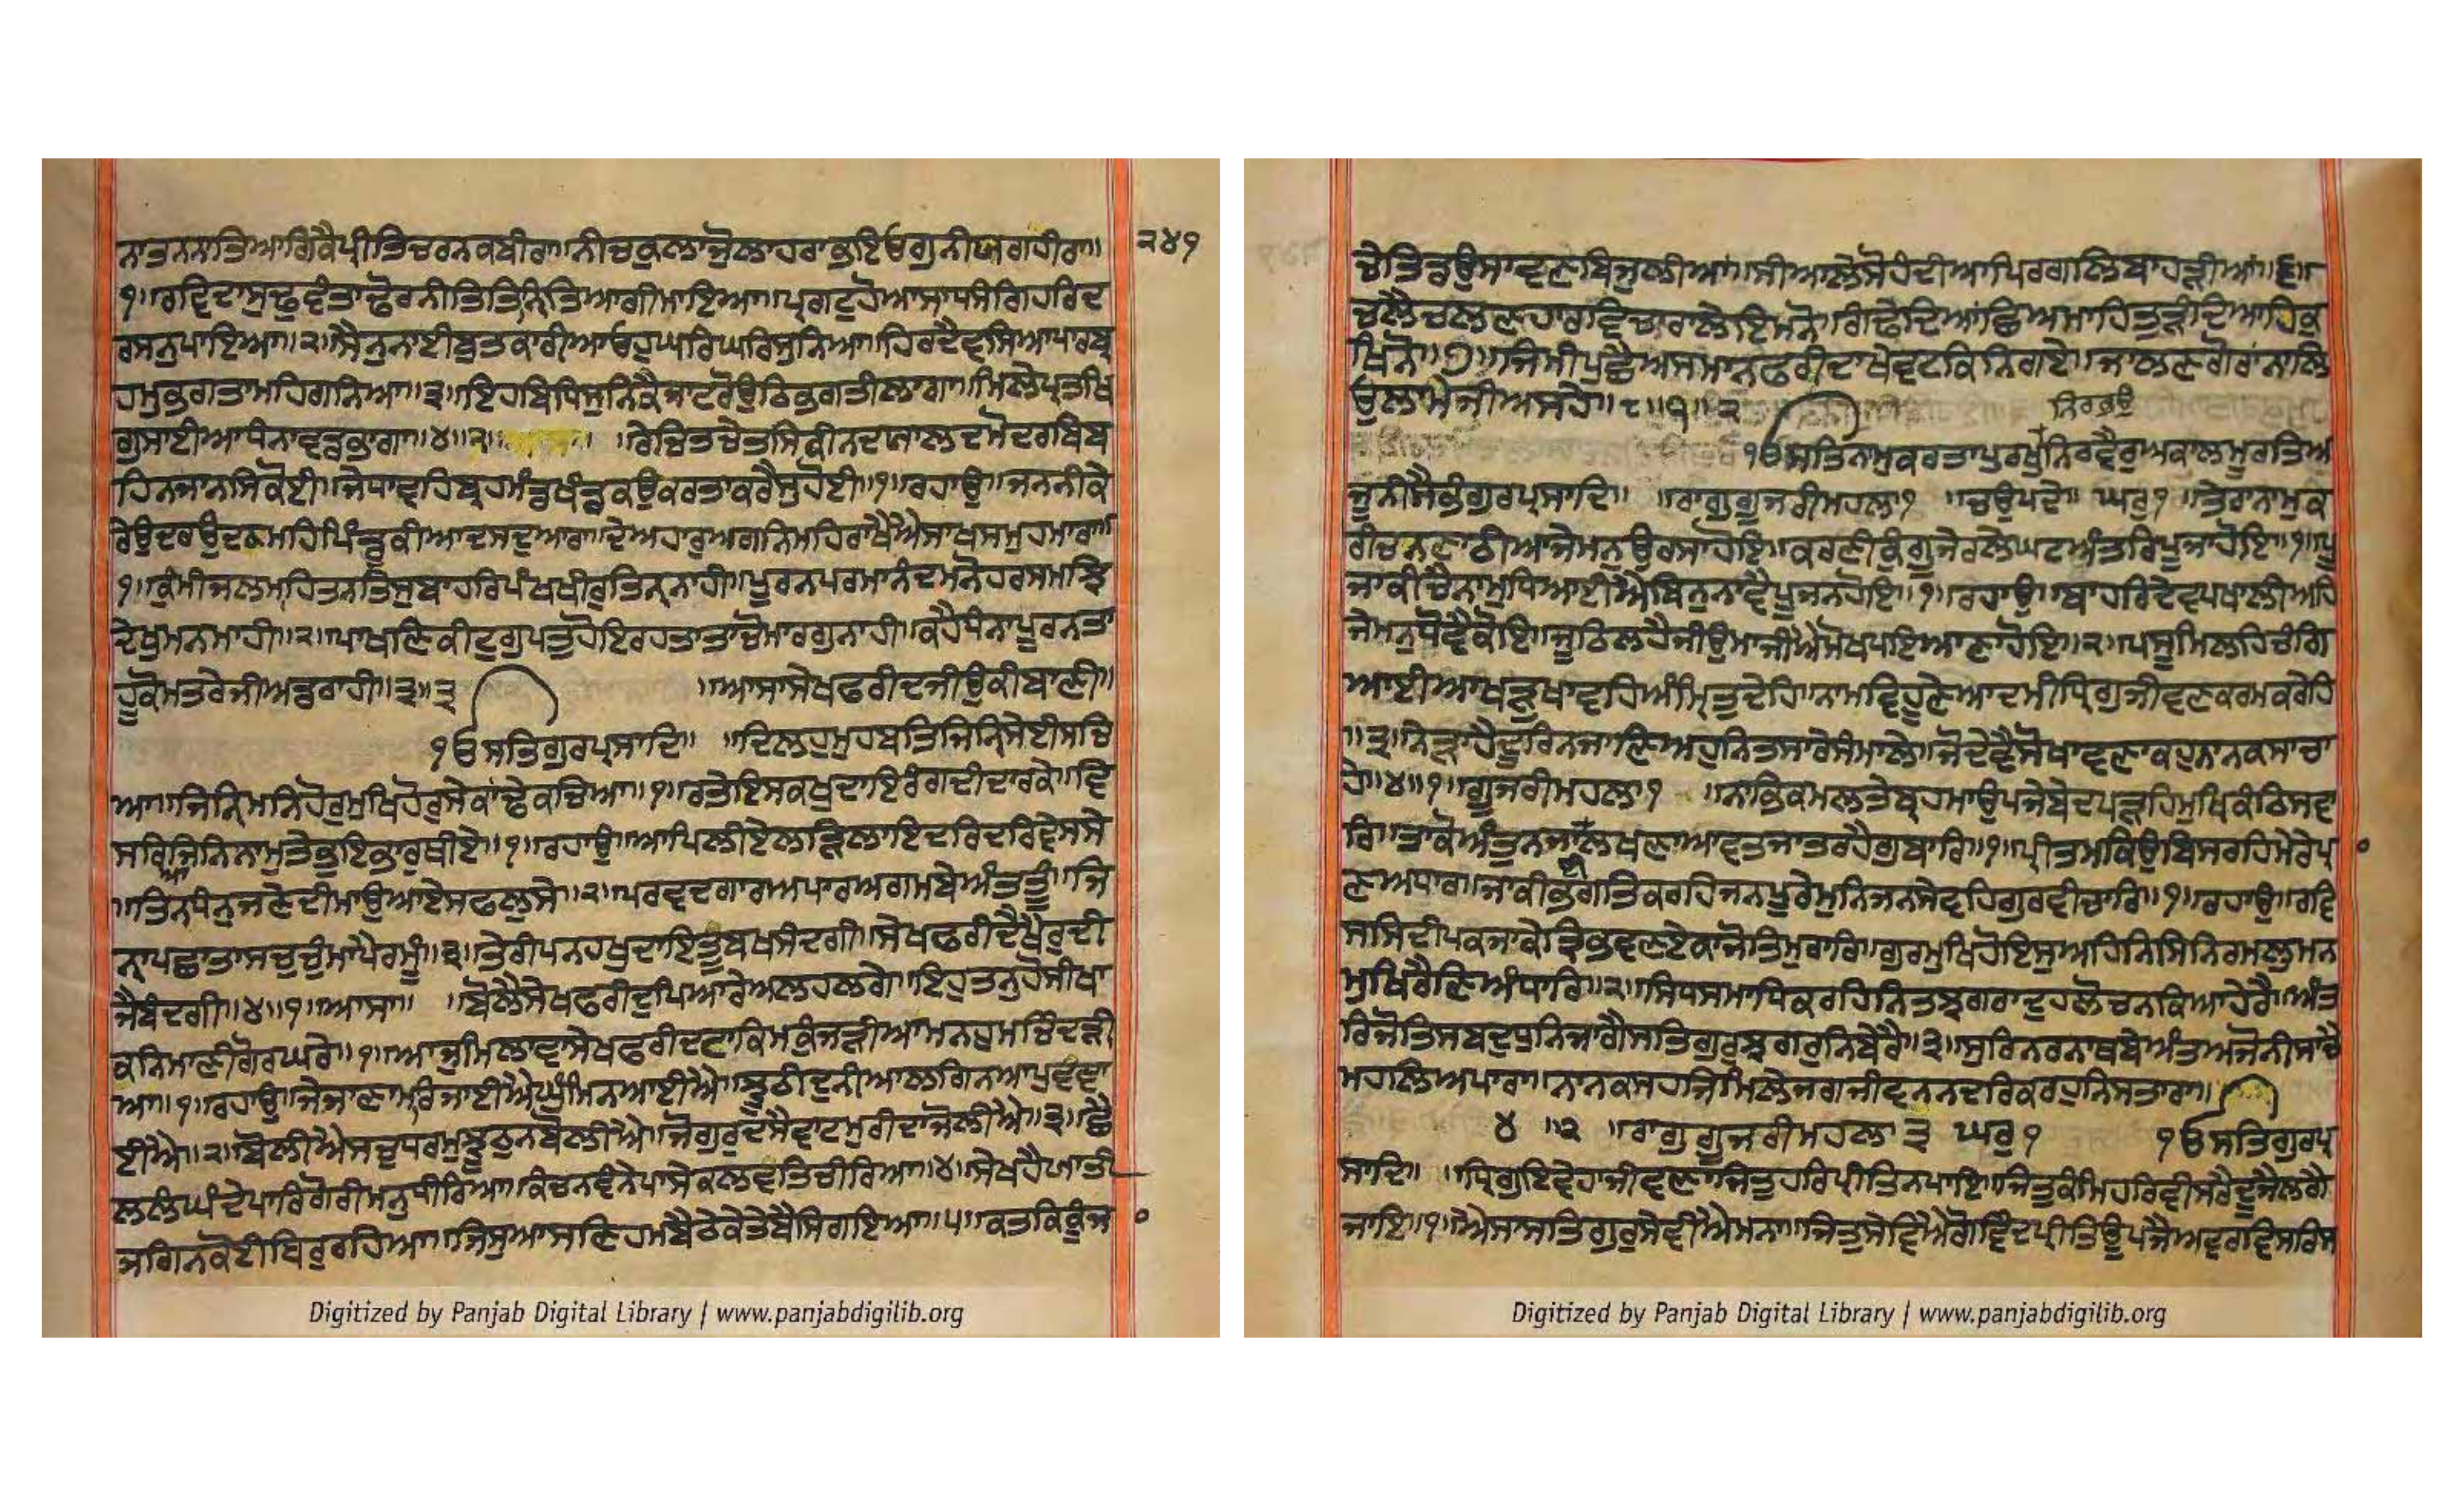 ਨਾਤਨਨਾਤਿਆਗਿਕੈਪ੍ਰੀਤਿਚਰਨਕਬੀਰਾ॥ਨੀਚਕੁਲਾਜੋਲਾਹਰਾਭਇਓਗੁਨੀਯਗਹੀਰਾ॥ ੨੪੧
੧॥ਰਵਿਦਾਸੁਢੁਵੰਤਾਢੋਰਨੀਤਿਤਿਨਿਤਿਆਗੀਮਾਇਆ॥ਪ੍ਰਗਟੁਹੋਆਸਾਧਸੰਗਿਹਰਿਦ
ਰਸਨੁਪਾਇਆ॥੨॥ਸੈਨੁਨਾਈਬੁਤਕਾਰੀਆਓਹੁਘਰਿਘਰਿਸੁਨਿਆ॥ਹਿਰਦੈਵਸਿਆਪਾਰਬ੍
ਹਮੁਭਗਤਾਮਹਿਗਨਿਆ॥੩॥ਇਹਬਿਧਿਸੁਨਿਕੈਜਾਟਰੋਉਠਿਭਗਤੀਲਾਗਾ॥ਮਿਲੇਪ੍ਰਤਖਿ
ਗੁਸਾਈਆਧੰਨਾਵਡਭਾਗਾ॥੪॥੨॥ ॥ਰੇਚਿਤਚੇਤਸਿਕੀਨਦਯਾਲਦਮੋਦਰਬਿਬ
ਹਿਨਜਾਨਸਿਕੋਈ॥ਜੇਧਾਵਹਿਬ੍ਰਹਮੰਡਖੰਡਕਉਕਰਤਾਕਰੈਸੁਹੋਈ॥੧॥ਰਹਾਉ॥ਜਨਨੀਕੇ
ਰੇਉਦਰਉਦਕਮਹਿਪਿੰਡੁਕੀਆਦਸਦੁਆਰਾ॥ਦੇਅਹਾਰੁਅਗਨਿਮਹਿਰਾਖੈਐਸਾਖਸਮੁਹਮਾਰਾ॥
੧॥ਕੁੰਮੀਜਲਮਹਿਤਨਤਿਸੁਬਾਹਰਿਪੰਖਖੀਰੁਤਿਨ੍ਹਨਾਹੀ॥ਪੂਰਨਪਰਮਾਨੰਦਮਨੋਹਰਸਮਝਿ
ਦੇਖੁਮਨਮਾਹੀ॥੨॥ਪਾਖਣਿਕੀਟੁਗੁਪਤੁਹੋਇਰਹਤਾਤਾਚੋਮਾਰਗੁਨਾਹੀ॥ਕਹੈਧੰਨਾਪੂਰਨਤਾ
ਹੂਕੋਮਤਰੇਜੀਅਡਰਾਹੀ॥੩॥੩ ॥ਆਸਾਸੇਖਫਰੀਦਜੀਉਕੀਬਾਣੀ॥
੧ਓਸਤਿਗੁਰਪ੍ਰਸਾਦਿ॥ ॥ਦਿਲਹੁਮੁਹਬਤਿਜਿਨ੍ਹਿਸੇਈਸਚਿ
ਆ॥ਜਿਨ੍ਹਿਮਨਿਹੋਰੁਮੁਖਿਹੋਰੁਸੇਕਾਂਢੇਕਚਿਆ॥੧॥ਰਤੇਇਸਕਖੁਦਾਇਰੰਗਦੀਦਾਰਕੇ॥ਵਿ
ਸਰਿਆਜਿਨਿਨਾਮੁਤੇਭੁਇਭਾਰੁਥੀਏ॥੧॥ਰਹਾਉ॥ਆਪਿਲੀਏਲੜਿਲਾਇਦਰਿਦਰਵੇਸਸੇ
॥ਤਿਨਧੰਨੁਜਣੇਦੀਮਾਉਆਏਸਫਲੁਸੇ॥੨॥ਪਰਵਦਗਾਰਅਪਾਰਅਗਮਬੇਅੰਤਤੂੰ॥ਜਿ
ਨ੍ਹਾਪਛਾਤਾਸਚੁਚੁੰਮਾਪੈਰਮੂੰ॥੩॥ਤੇਰੀਪਨਹਖੁਦਾਇਤੂਬਖਸੰਦਗੀ॥ਸੇਖਫਰੀਦੈਖੈਰੁਦੀ
ਜੈਬੰਦਗੀ॥੪॥੧॥ਆਸਾ॥ ॥ਬੋਲੈਸੇਖਫਰੀਦੁਪਿਆਰੇਅਲਹਲਗੇ॥ਇਹੁਤਨੁਹੋਸੀਖਾ
ਕਨਿਮਾਣੀਗੋਰਘਰੇ॥੧॥ਆਜੁਮਿਲਾਵਾਸੇਖਫਰੀਦਟਾਕਿਮਕੂੰਜੜੀਆਮਨਹੁਮਚਿੰਦੜੀ
ਆ॥੧॥ਰਹਾਉ॥ਜੇਜਾਣਾਮਰਿਜਾਈਐਘੁੰਮਿਨਆਈਐ॥ਝੂਠੀਦੁਨੀਆਲਗਿਨਆਪੁਵਞਾ
ਈਐ॥੨॥ਬੋਲੀਐਸਚੁਧਰਮੁਝੂਠੁਨਬੋਲੀਐ॥ਜੋਗੁਰੁਦਸੈਵਾਟਮੁਰੀਦਾਜੋਲੀਐ॥੩॥ਛੈ
ਲਲੰਘੰਦੇਪਾਰਿਗੋਰੀਮਨੁਧੀਰਿਆ॥ਕੰਚਨਵੰਨੇਪਾਸੇਕਲਵਤਿਚੀਰਿਆ॥੪॥ਸੇਖਹੈਯਾਤੀ
ਜਗਿਨਕੋਈਥਿਰੁਰਹਿਆ॥ਜਿਸੁਆਸਣਿਹਮਬੈਠੇਕੇਤੇਬੈਸਿਗਇਆ॥੫॥ਕਤਕਿਕੂੰਜ
Digitized by Panjab Digital Library | www.panjabdigilib.org
ਚੇਤਿਡਉਸਾਵਣਬਿਜੁਲੀਆਂ॥ਸੀਆਲੇਸੋਹੰਦੀਆਪਿਰਗਲਿਬਾਹੜੀਆਂ॥੬॥
ਚਲੇਚਲਣਹਾਰਵਿਚਾਰਾਲੇਇਮਨੋ॥ਗੰਢੇਦਿਆਂਛਿਅਮਾਹਤੁੜੰਦਿਆਹਿਕੁ
ਖਿਨੋ॥੭॥ਜਿਮੀਪੁਛੈਅਸਮਾਨਫਰੀਦਾਖੇਵਟਕਿੰਨਿਗਏ॥ਜਾਲਣਗੋਰਾਂਨਾਲਿ
ਉਲਾਮੇਜੀਅਸਹੇ॥੮॥੧॥੨ ਨਿਰਭਉ
੧ਓਸਤਿਨਾਮੁਕਰਤਾਪੁਰਖੁਨਿਰਵੈਰੁਅਕਾਲਮੂਰਤਿਅ
ਜੂਨੀਸੈਭੰਗੁਰਪ੍ਰਸਾਦਿ॥ ॥ਰਾਗੁਗੂਜਰੀਮਹਲਾ੧ ॥ਚਉਪਦੇ॥ ਘਰੁ੧ ॥ਤੇਰਾਨਾਮੁਕ
ਰੀਚਨਣਾਠੀਆਜੇਮਨੁਉਰਸਾਹੋਇ॥ਕਰਣੀਕੁੰਗੂਜੇਰਲੇਘਟਅੰਤਰਿਪੂਜਾਹੋਇ॥੧॥ਪੂ
ਜਾਕੀਚੈਨਾਮੁਧਿਆਈਐਬਿਨੁਨਾਵੈਪੂਜਨਹੋਇ॥੧॥ਰਹਾਉ॥ਬਾਹਰਿਦੇਵਪਖਾਲੀਅਹਿ
ਜੇਮਨੁਧੋਵੈਕੋਇ॥ਜੂਠਿਲਹੈਜੀਉਮਾਜੀਐਮੋਖਪਇਆਣਾਹੋਇ॥੨॥ਪਸੂਮਿਲਹਿਚੰਗਿ
ਆਈਆਖੜੁਖਾਵਹਿਅੰਮ੍ਰਿਤੁਦੇਹਿ॥ਨਾਮਵਿਹੂਣੇਆਦਮੀਧ੍ਰਿਗੁਜੀਵਣਕਰਮਕਰੇਹਿ
॥੩॥ਨੇੜਾਹੈਦੂਰਿਨਜਾਣਿਅਹੁਨਿਤਸਾਰੇਸੰਮਾਲੇ॥ਜੋਦੇਵੈਸੋਖਾਵਣਾਕਹੁਨਾਨਕਸਾਚਾ
ਹੇ॥੪॥੧॥ਗੂਜਰੀਮਹਲਾ੧ ॥ਨਾਭਿਕਮਲਤੇਬ੍ਰਹਮਾਉਪਜੇਬੇਦਪੜਹਿਮੁਖਿਕੰਠਿਸਵਾ
ਰਿ॥ਤਾਕੋਅੰਤੁਨਜਾਈਲਖਣਾਆਵਤਜਾਤਰਹੈਗੁਬਾਰਿ॥੧॥ਪ੍ਰੀਤਮਕਿਉਬਿਸਰਹਿਮੇਰੇਪ੍ਰਾ
ਣਅਧਾਰ॥ਜਾਕੀਭਗਤਿਕਰਹਿਜਨਪੂਰੇਮੁਨਿਜਨਸੇਵਹਿਗੁਰਵੀਚਾਰਿ॥੧॥ਰਹਾਉ॥ਰਵਿ
ਸਸਿਦੀਪਕਜਾਕੇਤ੍ਰਿਭਵਣਏਕਾਜੋਤਿਮੁਰਾਰਿ॥ਗੁਰਮੁਖਿਹੋਇਸੁਅਹਿਨਿਸਿਨਿਰਮਲੁਮਨ
ਮੁਖਿਰੈਣਿਅੰਧਾਰਿ॥੨॥ਸਿਧਸਮਾਧਿਕਰਹਿਨਿਤਝਗਰਾਦੁਹੁਲੋਚਨਕਿਆਹੇਰੈ॥ਅੰਤ
ਰਿਜੋਤਿਸਬਦੁਧੁਨਿਜਾਗੈਸਤਿਗੁਰੁਝਗਰੁਨਿਬੇਰੈ॥੩॥ਸੁਰਿਨਰਨਾਥਬੇਅੰਤਅਜੋਨੀਸਾਚੈ
ਮਹਲਿਅਪਾਰਾ॥ਨਾਨਕਸਹਜਿਮਿਲੇਜਗਜੀਵਨਨਦਰਿਕਰਹੁਨਿਸਤਾਰਾ॥
੪ ॥੨ ॥ਰਾਗੁਗੂਜਰੀਮਹਲਾ੩ ਘਰੁ੧ ੧ਓਸਤਿਗੁਰਪ੍ਰ
ਸਾਦਿ॥ ॥ਧ੍ਰਿਗੁਇਵੇਹਾਜੀਵਣਾਜਿਤੁਹਰਿਪ੍ਰੀਤਿਨਪਾਇ॥ਜਿਤੁਕੰਮਿਹਰਿਵੀਸਰੈਦੂਜੈਲਗੈ
ਜਾਇ॥੧॥ਐਸਾਸਤਿਗੁਰੁਸੇਵੀਐਮਨਾ॥ਜਿਤੁਸੇਵਿਐਗੋਵਿੰਦਪ੍ਰੀਤਿਊਪਜੈਅਵਰਵਿਸਰਿਸ
Digitized by Panjab Digital Library | www.panjabdigilib.org